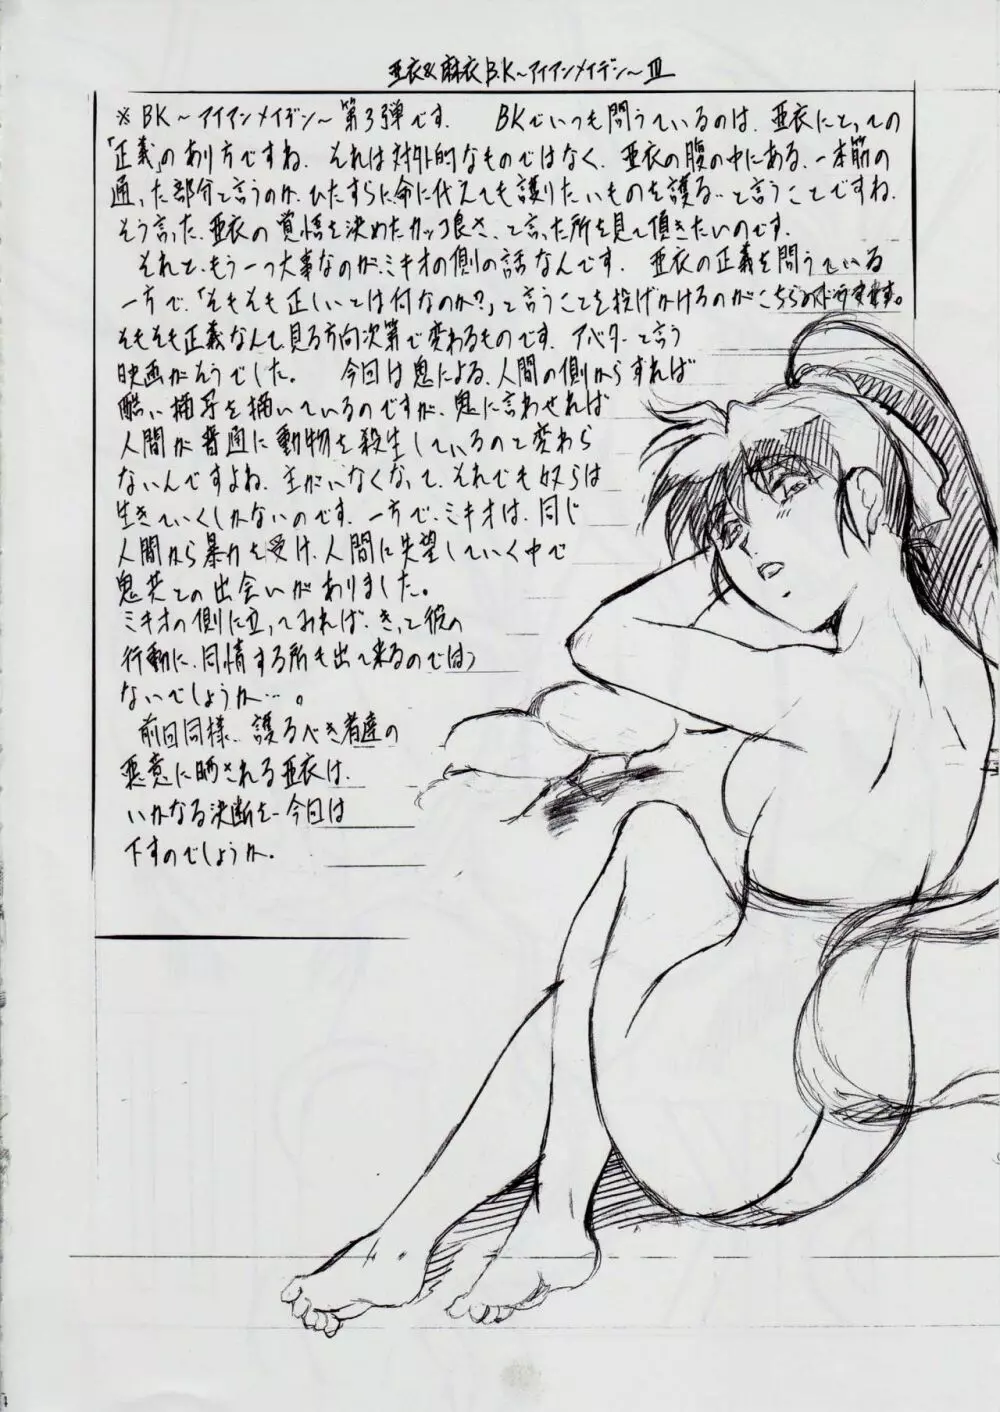 亜衣&麻衣B.K~アイアンメイデン~III
※BK~アイアンメイデン~第3弾です. BKでいつも問うているのは、亜衣にとっての
「正義」のあり方ですね. それは対外的なものではなく、亜衣の腹の中にある、一本筋の
通った部分と言うのか、ひたすらに命に代えても護りたいものを護る…と言うことですね.
そう言った、亜衣の覚悟を決めたカッコ良さ、と言った所を見て頂きたいのです.
それと、もう一つ大事なのが、ミキオの側の話なんです. 亜衣の正義を問うている
一方で、「そもそも正しいとは何なのか?」と言うことを投げかけるのがこちらの
そもそも正義なんて見る方向次第で変わるものです. アバターと言う
映画がそうでした。 今回は鬼による、人間の側からすれば
酷い描写を描いているのですが、鬼に言わせれば
人間が普通に動物を殺生しているのと変わら
ないんですよね. 主がいなくなって、それでも奴らは
生きていくしかないのです. 一方で、ミキオは、同じ
人間から暴力を受け、人間に失望していく中で
鬼共との出会いがありました。
ミキオの側に立ってみれば、きっと彼の
行動に、同情する所も出て来るのでは
ないでしょうか…。
前回同様、護るべき者達の
悪意に晒される亜衣は、
いかなる決断を、今回は
下すのでしょうか.